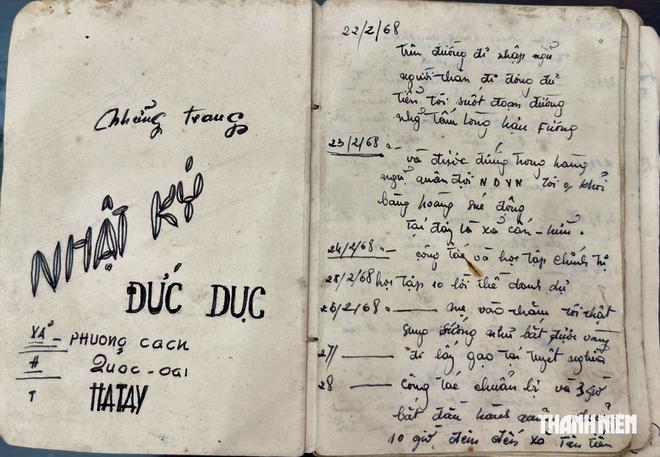 Những trang
NHẬT KÝ
ĐỨC DỤC
XÃ PHƯỢNG CÁCH
H QUỐC-OAI
T HATAY
22/2/68
trên đường đi nhập ngũ
người thân đi đông đủ
tiễn tôi suốt đoạn đường
nhỡ tấm lòng hậu Fương
23/2/68 -
và được đứng trong hàng
ngũ quân đội NDVN tôi q khỏi
bàng hoàng sué động
tại đây là xã cấn-hữu.
24/2/68 - công tác và học tập chính trị
25/2/68 học tập 10 lời thề danh dự
26/2/68 - mẹ vào thăm tôi thật
sung sướng như bắt được vàng
27/ - đi lấy gạo tại tuyết nghĩa
28 - công tác chuẩn bị và 3 giờ
bắt đầu hành
10 giờ đêm đến xã Tân tiến
THANH NIÊN